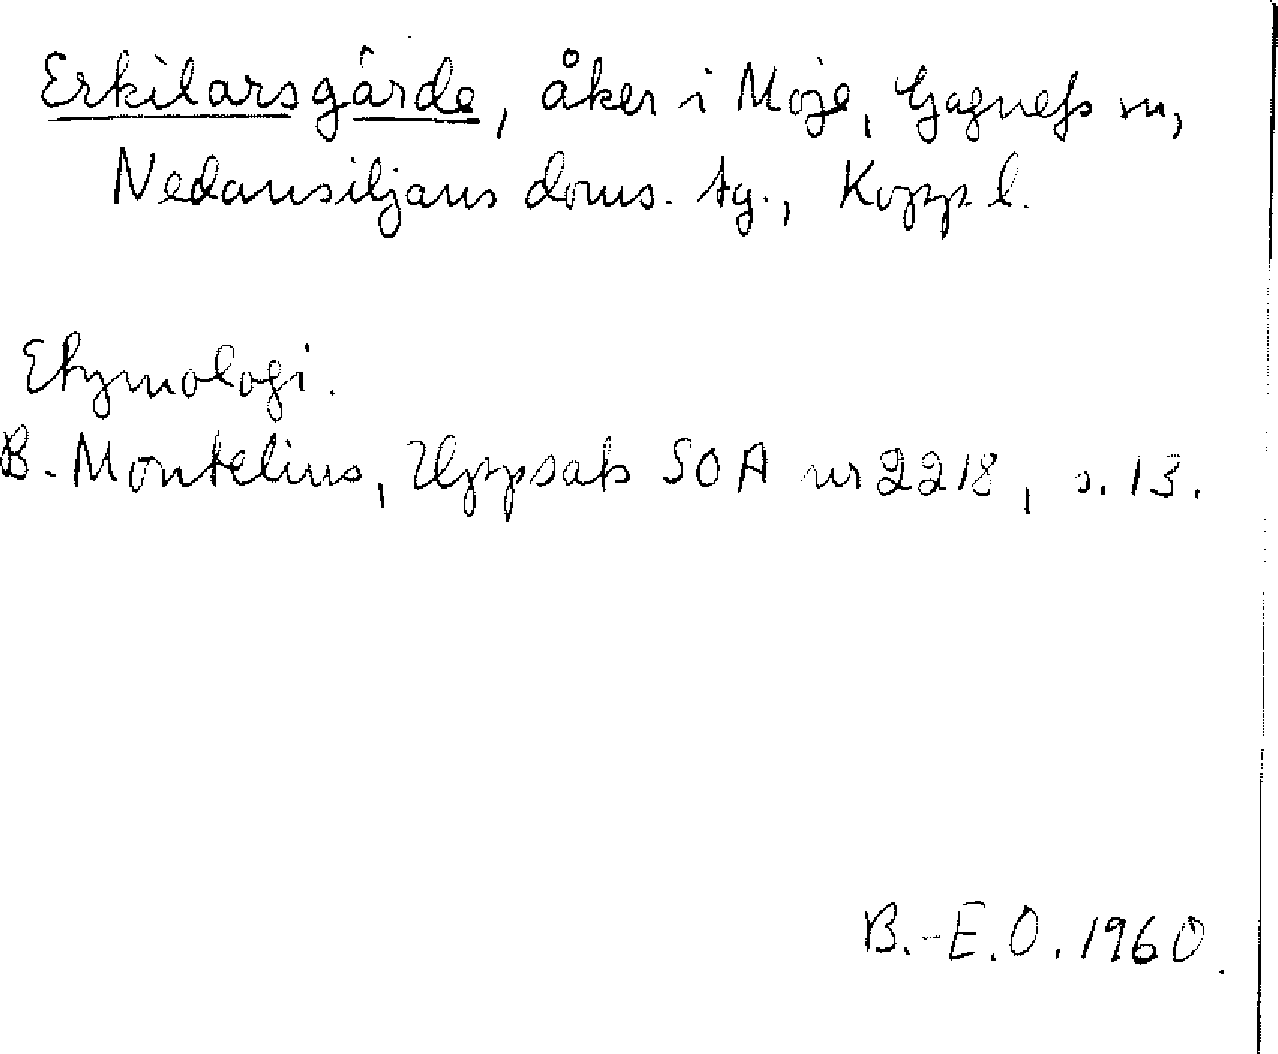 Erkilarsgärde, åker i Möje, Gagnefs sn,
Nedansiljans doms. tg., Kopp l.
Etymologi.
B. Montelius, Uppsats SOA nr 2218, s. 13.
B.-E.O. 1960.